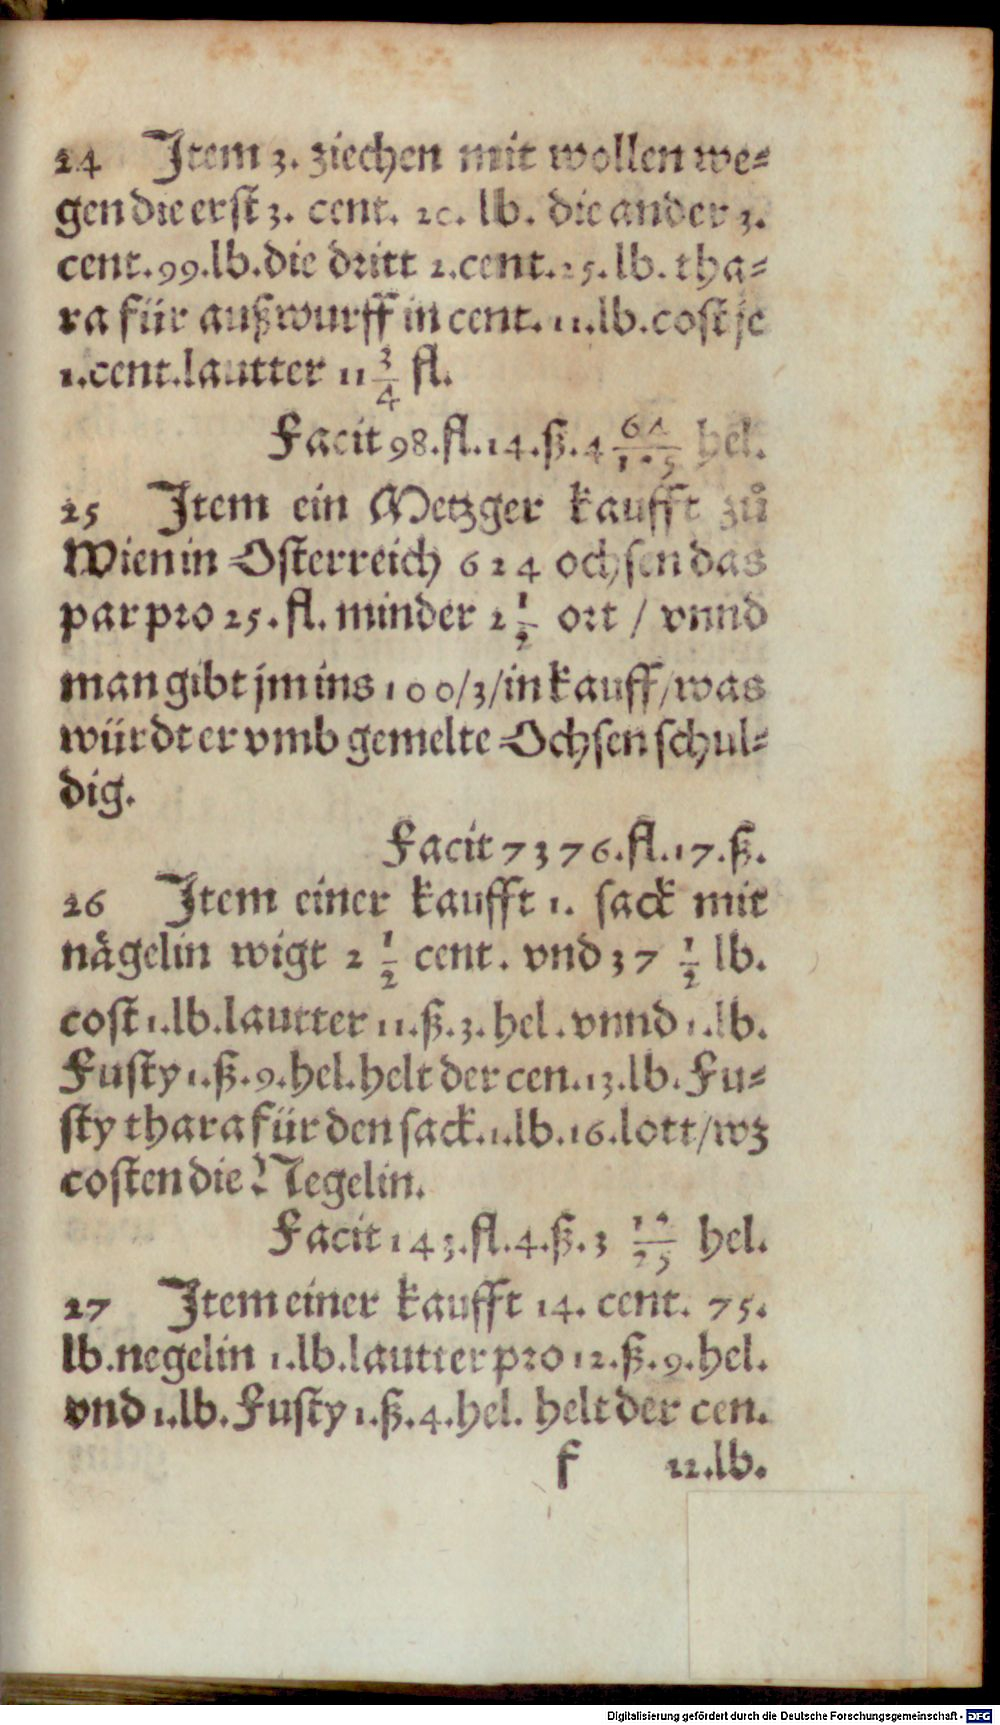 24 Item 3. ziechen mit wollen we⸗
gen die erst 3. cent. 20. lb. die ander 3.
cent. 99. lb. die dritt 2. cent. 25. lb. tha⸗
ra für außwurff in cent. 11. lb. cost je
1. cent. lautter 11 3/4 fl.
Facit 98. fl. 14. ß. 4 hel.
25 Item ein Metzger kaufft zů
Wien in Osterreich 624 ochsen das
par pro 25. fl. minder 2 1/2 ort / vnnd
man gibt jm ins 100/3/in kauff/was
würdt er vmb gemelte Ochsen schul⸗
dig.
Facit 7376. fl. 17. ß.
26 Item einer kaufft 1. sack mit
nägelin wigt 2 1/2 cent. vnd 37 1/2 lb.
cost 1. lb. lautter 11. ß. 3. hel. vnnd 1. lb.
Fusty 1. ß. 9. hel. helt der cen. 13. lb. Fu⸗
sty thara für den sack. 1. lb. 16. lott/wz
costen die Negelin.
Facit 143. fl. 4. ß. 3 hel.
27 Item einer kaufft 14. cent. 75.
lb. negelin 1. lb. lautter pro 12. ß. 9. hel.
vnd 1. lb. Fusty 1. ß. 4. hel. helt der cen.
f 12. lb.
Digitalisierung gefördert durch die Deutsche Forschungsgemeinschaft - DFG